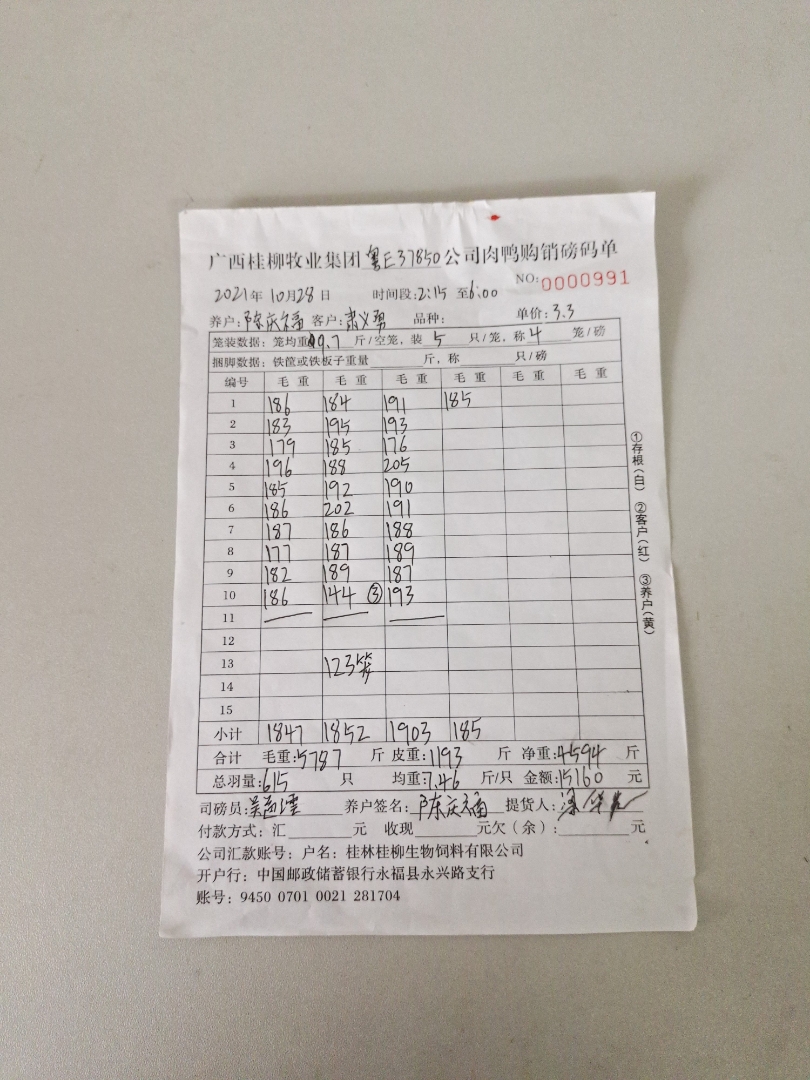 广西桂柳牧业集团粤E37850公司肉鸭购销磅码单
NO:0000991
2021年10月28日 时间段:2:15至6:00
养户:陈庆福 客户:肃义勇 品种: 单价:3.3
笼装数据:笼均重9.7斤/空笼,装5只/笼,称4笼/磅
捆脚数据:铁筐或铁板子重量 斤,称 只/磅
编号 毛重 毛重 毛重 毛重 毛重 毛重
1 186 184 191 185
2 183 195 193
3 179 185 176
4 196 188 205
5 185 192 190
6 186 202 191
7 187 186 188
8 177 187 189
9 182 189 187
10 186 144 ③ 193
11
12
13 123笼
14
15
小计 1847 1852 1903 185
合计 毛重:5787斤 皮重:1193斤 净重:4594斤
总羽量:615只 均重:7.46斤/只 金额:15160元
司磅员: 养户签名:陈庆福 提货人:
付款方式:汇 元 收现 元欠(余): 元
公司汇款账号:户名:桂林桂柳生物饲料有限公司
开户行:中国邮政储蓄银行永福县永兴路支行
账号:9450 0701 0021 281704
①存根(白) ②客户(红) ③养户(黄)